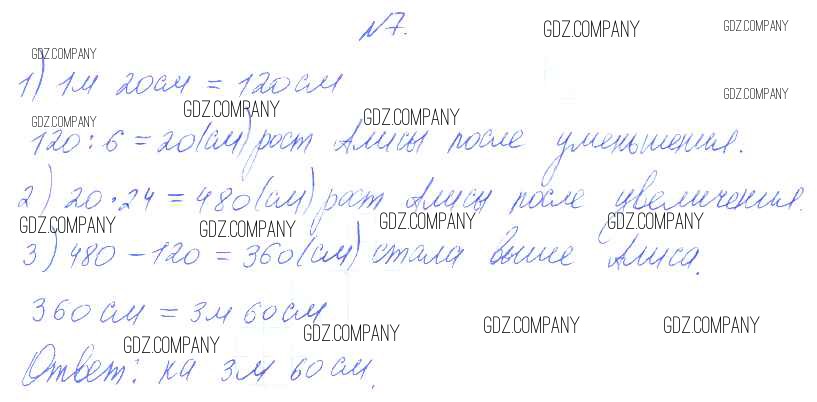 №7.
GDZ.COMPANY GDZ.COMPANY
GDZ.COMPANY
1) 1м 20см = 120см
GDZ.COMPANY
GDZ.COMPANY GDZ.COMPANY
GDZ.COMPANY
120 : 6 = 20(см) рост Алисы после уменьшения.
2) 20 · 24 = 480(см) рост Алисы после увеличения.
GDZ.COMPANY GDZ.COMPANY GDZ.COMPANY GDZ.COMPANY
3) 480 - 120 = 360(см) стала выше Алиса.
360см = 3м 60см
GDZ.COMPANY GDZ.COMPANY GDZ.COMPANY GDZ.COMPANY
Ответ: на 3м 60см.